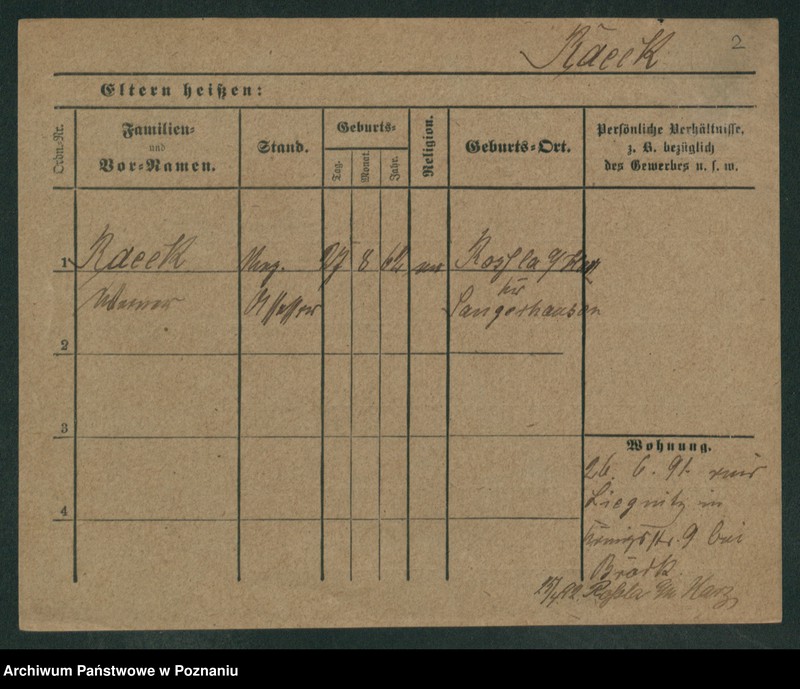 Racek
2
Eltern heißen:
Ordn.-Nr.
Familien-
und
Vor-Namen.
Stand.
Geburts-
Tag.
Monat.
Jahr.
Religion.
Geburts-Ort.
Persönliche Verhältnisse,
z. B. bezüglich
des Gewerbes u. s. w.
1 Racek Reg. 27 8 62 Rossla a/Harz
Werner Assessor Kr
Sangerhausen
2
3
4
Wohnung.
26. 6. 91. aus
Liegnitz in
Königsstr. 9 bei
Rossla am Harz
Archiwum Państwowe w Poznaniu